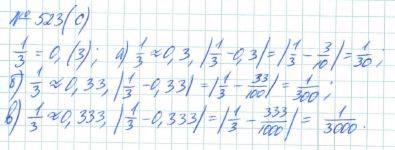 № 523(с)
1/3 = 0,(3); а) 1/3 ≈ 0,3, |1/3 - 0,3| = |1/3 - 3/10| = 1/30;
б) 1/3 ≈ 0,33, |1/3 - 0,33| = |1/3 - 33/100| = 1/300;
в) 1/3 ≈ 0,333, |1/3 - 0,333| = |1/3 - 333/1000| = 1/3000.